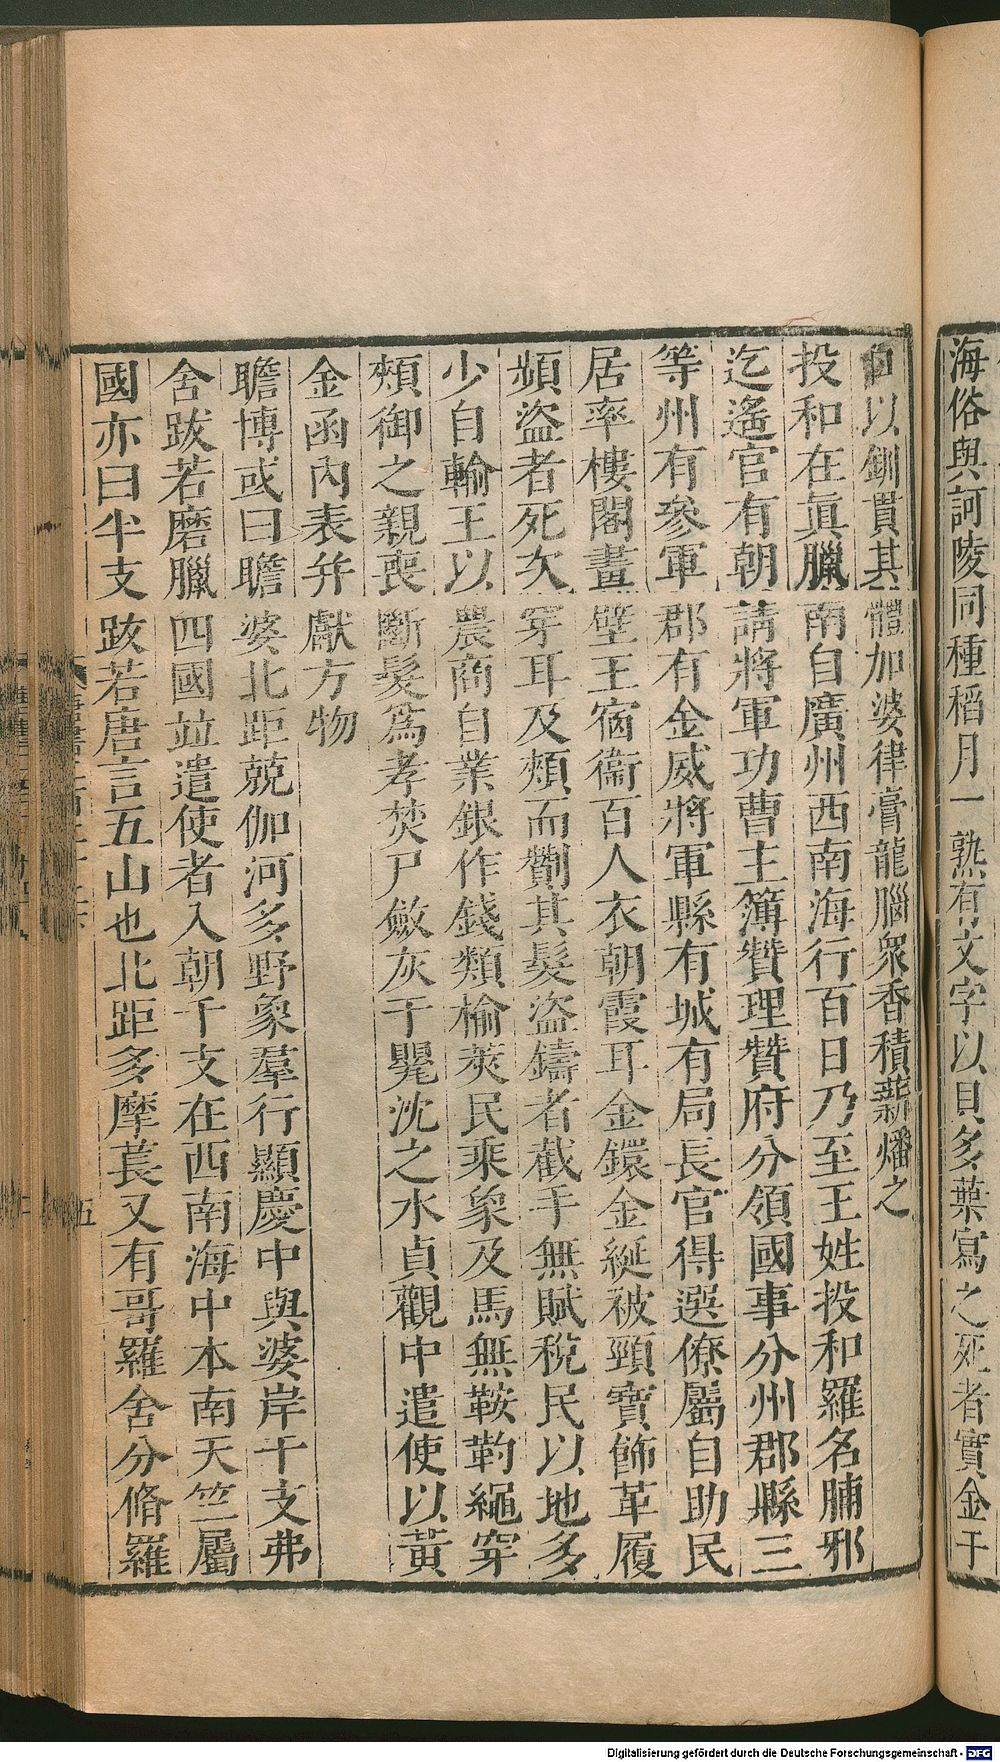 海俗與訶陵同種稻月一熟有文字以貝多葉寫之死者實金于
口以釧貫其體加婆律膏龍腦衆香積薪燔之
投和在眞臘南自廣州西南海行百日乃至王姓投和羅名脯邪
迄遙官有朝請將軍功曹主簿贊理贊府分領國事分州郡縣三
等州有參軍郡有金威將軍縣有城有局長官得選僚屬自助民
居率樓閣畫壁王宿衞百人衣朝霞耳金鐶金綖被頸寶飾革履
頻盜者死次穿耳及頰而劗其髮盜鑄者截手無賦稅民以地多
少自輸王以農商自業銀作錢類楡莢民乘象及馬無鞍靮繩穿
頰御之親喪斷髮爲孝焚尸斂灰于甖沈之水貞觀中遣使以黃
金函內表幷獻方物
瞻博或曰瞻婆北距兢伽河多野象羣行顯慶中與婆岸千支弗
舍跋若磨臘四國並遣使者入朝千支在西南海中本南天竺屬
國亦曰半支跋若唐言五山也北距多摩萇又有哥羅舍分脩羅
五
Digitalisierung gefördert durch die Deutsche Forschungsgemeinschaft - DFG